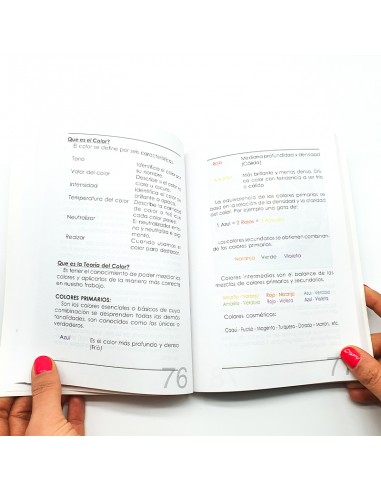 Que es el Color?
El color se define por seis características
Tono
Identifica el color
su nombre.
Valor del color
Describe si el color es
claro u oscuro.
Intensidad
Identifica si el color es
brillante u opaco.
Temperatura del color
Describe la
de color a fría o que
cada color posee.
Neutralizar
Es neutralizar
no y neutraliza el
miento.
Realzar
Cuando usamos el
color para destacar.
Que es la Teoría del Color?
Es tener el conocimiento de poder mezclar los
colores y aplicarlos de la manera más correcta
en nuestro trabajo.
COLORES PRIMARIOS:
Son los colores esenciales o básicos de cuya
combinación se desprenden todas las demás
tonalidades, son conocidos como las únicas o
verdaderas.
Azul
Es el color más profundo y denso
(Frío)
76
Rojo
Mediana profundidad y densidad
(Cálido)
Más brillante y menos denso. Un
color con tendencia a ser frío
o cálido
La equivalencia de los colores primarios se
basa en la relación de la densidad y la claridad
del color. Por ejemplo una gota de:
1 Azul = 2 Rojos =
Los colores secundarios se obtienen combinan
de los colores primarios.
Naranja Verde Violeta
Colores intermedios son el balance de las
mezclas de colores primarios y secundarios.
Amarillo - Naranja Rojo - Naranja Azul - Verde
Amarillo - Verde Rojo - Violeta Azul - Violeta
Colores cosméticos:
Caqui - Fucsia - Magenta - Turquesa - Dorado - Marrón, etc.